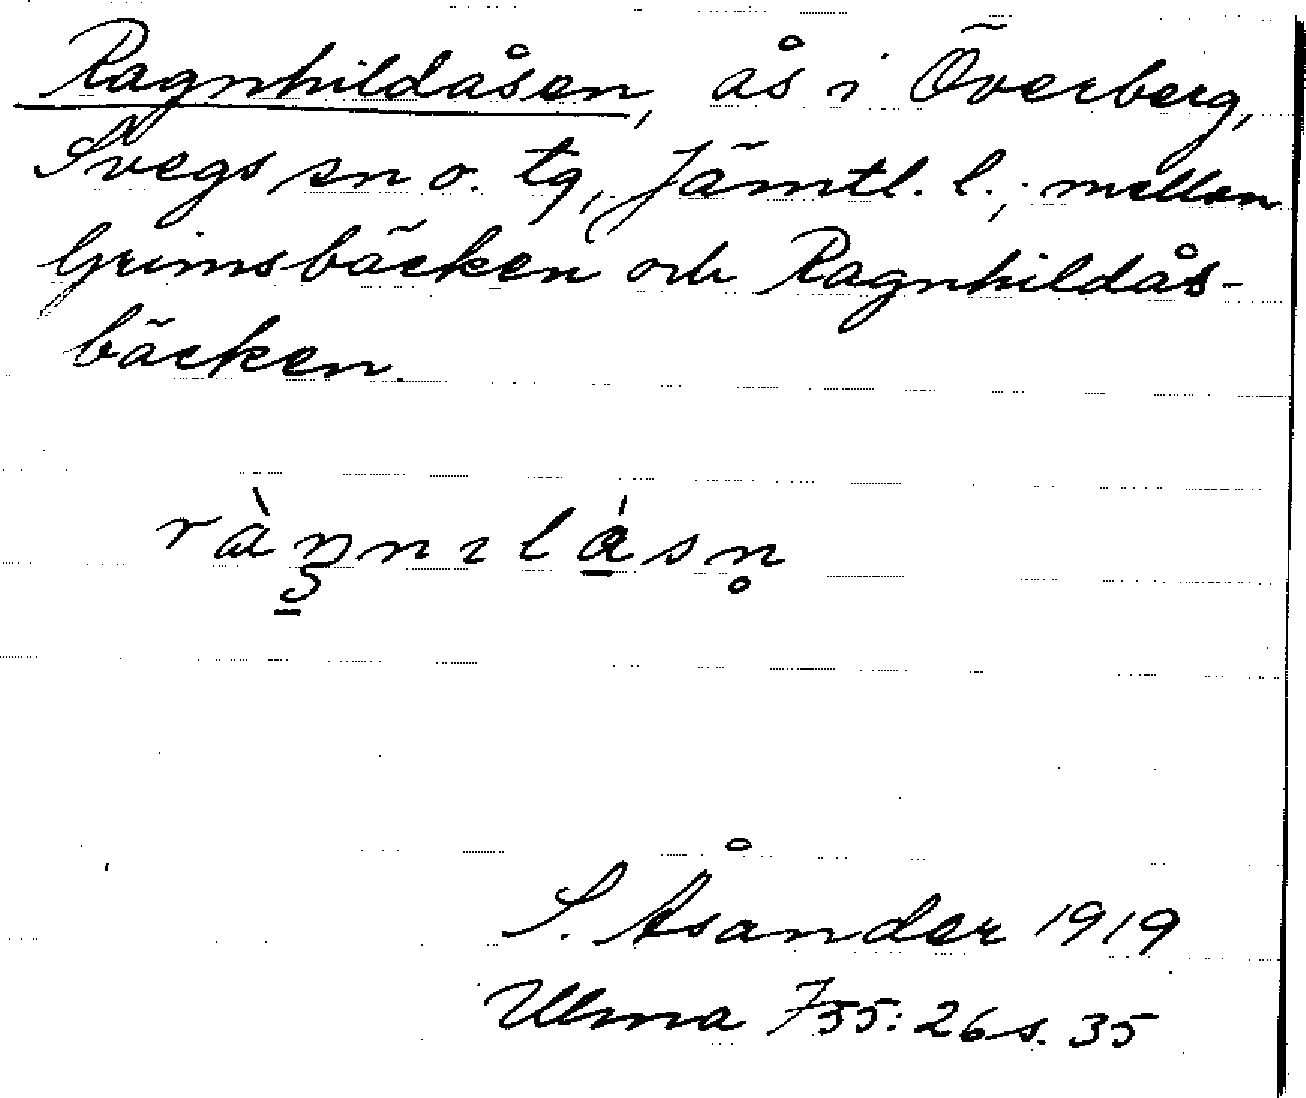 Ragnhildåsen, ås i Överberg,
Svegs sn o. tg, Jämtl. l., mellan
Grimsbäcken och Ragnhildås-
bäcken.
S. Åsander 1919
Ulma 755:26 s. 35